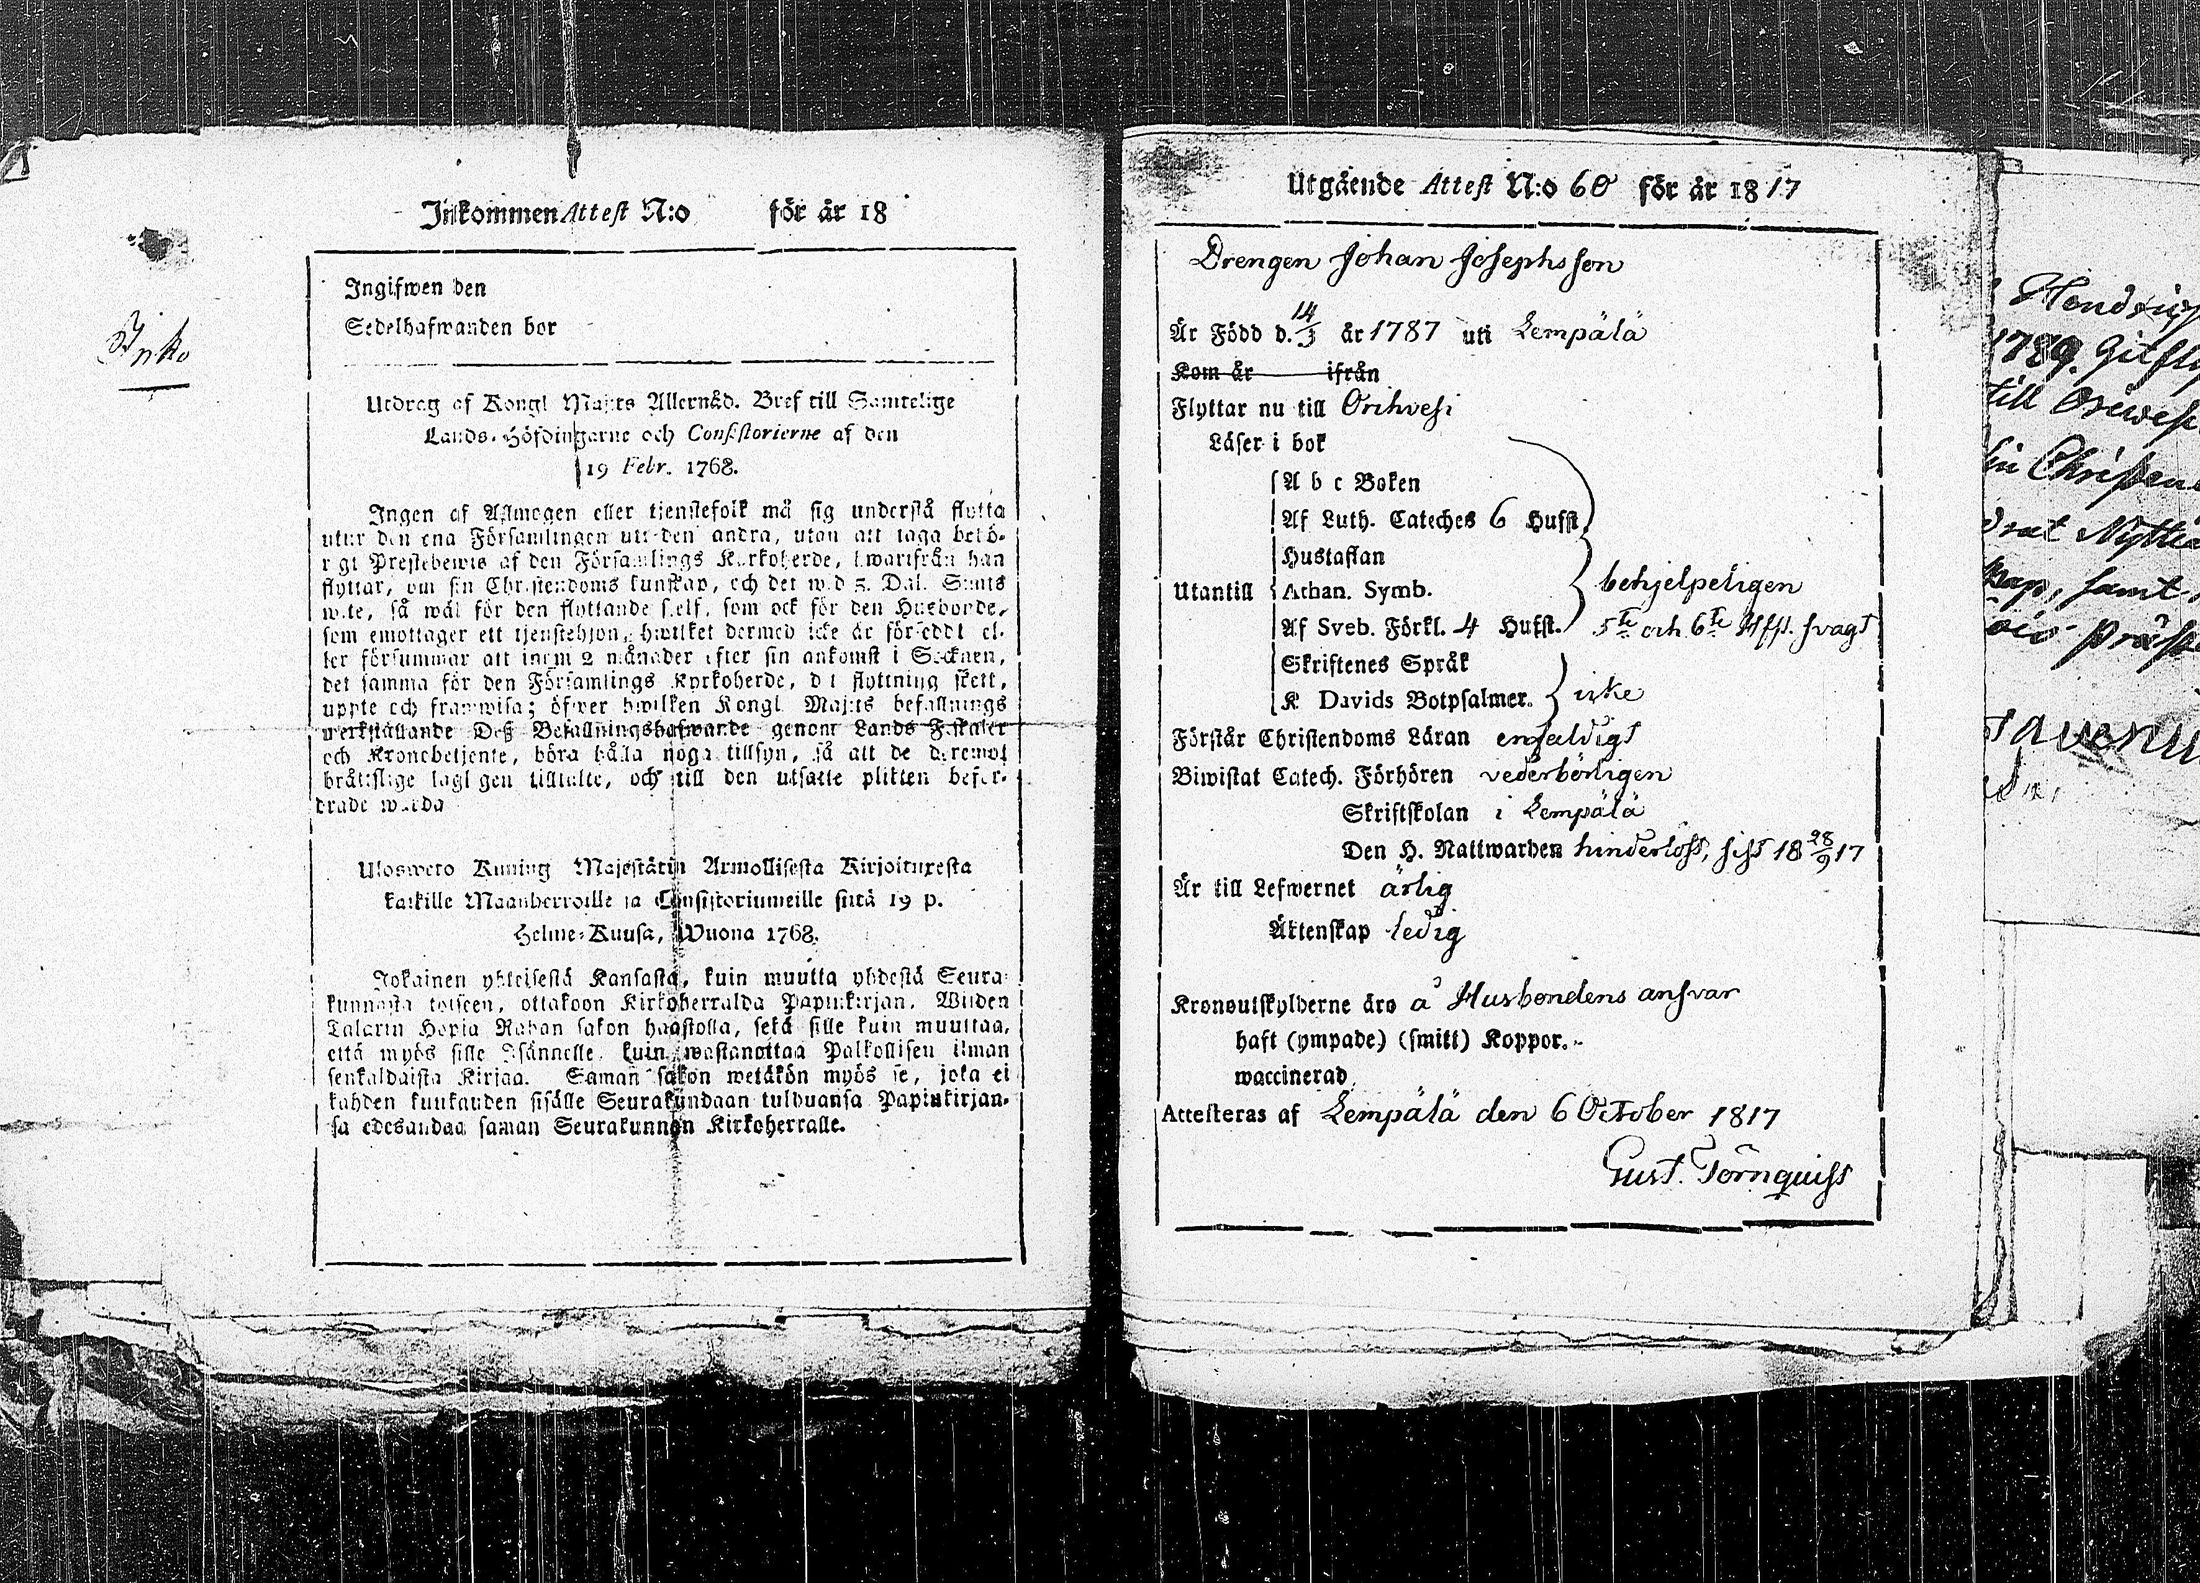 Inko
Inkommen Attest N:o för år 18
Ingifwen den
Sedelhafwanden bor
Utdrag af Kongl Maj:ts Allernåd. Bref till Samtelige
Lands-Höfdingarne och Consistorierne af den
19 Febr. 1768.
Ingen af Allmogen eller tjenstefolk må sig understå flytta
utur den ena Församlingen uti den andra, utan att taga behö-
rigt Prestebewis af den Församlings Kyrkoherde, hwarifrån han
flyttar, om sin Christendoms kunskap, och det wid 5. Dal. Smts
wite, så wäl för den flyttande sjelf, som ock för den Husbonde,
som emottager ett tjenstehjon, hwilket dermed icke är försedt el-
ler försummar att inom 2 månader efter sin ankomst i Socknen,
det samma för den Församlings Kyrkoherde, dit flyttning skett,
uppte och framwisa; öfwer hwilken Kongl Maj:ts befallnings
werkställande Deß Befallningshafwande genom Lands Fiskaler
och Kronobetjente, böra hålla noga tillsyn, så att de deremot
bråttslige lagligen tilltalte, och till den utsatte plikten befor-
drade warda
Ulosweto Kuning Majestätin Armollisesta Kirjoituxesta
kaikille Maanherroille ja Consistoriumeille siitä 19 p.
Helme-Kuusa, Wuona 1768.
Jokainen yhteisestä Kansasta, kuin muutta yhdestä Seura-
kunnasta toiseen, ottakoon Kirkoherralda Papinkirjan, Wiiden
Talarin Hopia Rahan sakon haastolla, sekä sille kuin muuttaa,
että myös sille Isännelle, kuin wastanottaa Palkollisen ilman
senkaldaista Kirjaa. Saman sakon wetäkön myös se, joka ei
kahden kuukauden sisälle Seurakundaan tulduansa Papinkirjan-
sa edesandaa saman Seurakunnan Kirkoherralle.
Utgående Attest N:o 60 för år 1817
Drengen Johan Josephsson
Är Född d. 14/3 år 1787 uti Lempälä
Kom år ifrån
Flyttar nu till Orihvesi
Läser i bok
A b c Boken
Af Luth. Cateches 6 Hufst.
Hustaflan
Utantill Athan. Symb. behjelpeligen
Af Sveb. Förkl. 4 Hufst. 5te och 6te Hfst. svagt
Skriftenes Språk
K Davids Botpsalmer. icke
Förstår Christendoms Läran enfaldigt
Biwistat Catech. Förhören vederbörligen
Skriftskolan i Lempälä
Den H. Nattwarden hinderlöst, sist 18 28/9 17
Är till Lefwernet ärlig
Äktenskap ledig
Kronoutskylderne äro å Husbondens ansvar
haft (ympade) (smitt) Koppor.
waccinerad
Attesteras af Lempälä den 6 October 1817
Gust. Törnquist
1789.
till
samt